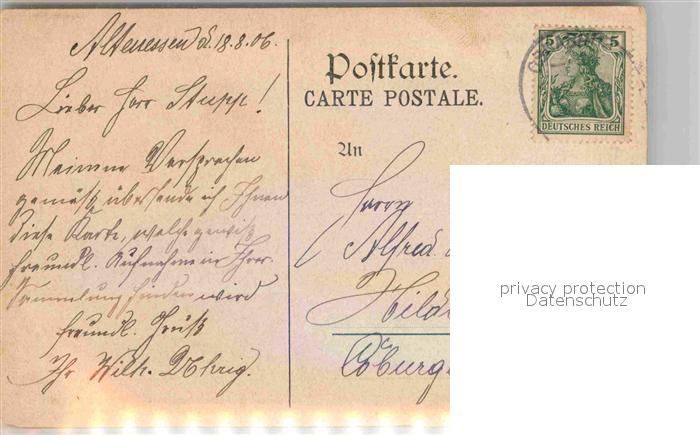 Altenessen d. 18.8.06.
Lieber Herr Stupp!
Meinem Versprechen
gemäß übersende ich Ihnen
diese Karte, welche gewiß
freundl. Aufnahme in Ihrer
Sammlung finden wird
freundl. Gruß
Ihr Wilh.
Postkarte.
CARTE POSTALE.
5 5
DEUTSCHES REICH
An
Herrn
Alfred
privacy protection
Datenschutz